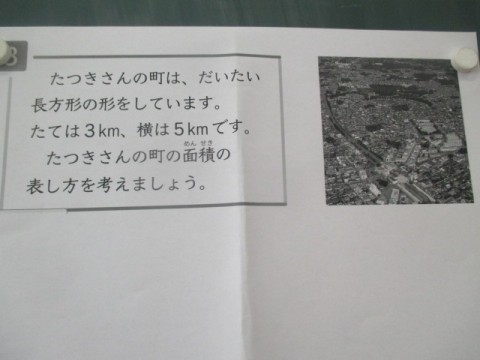 3
たつきさんの町は、だいたい
長方形の形をしています。
たては3km、横は5kmです。
たつきさんの町の面積の
めん せき
表し方を考えましょう。